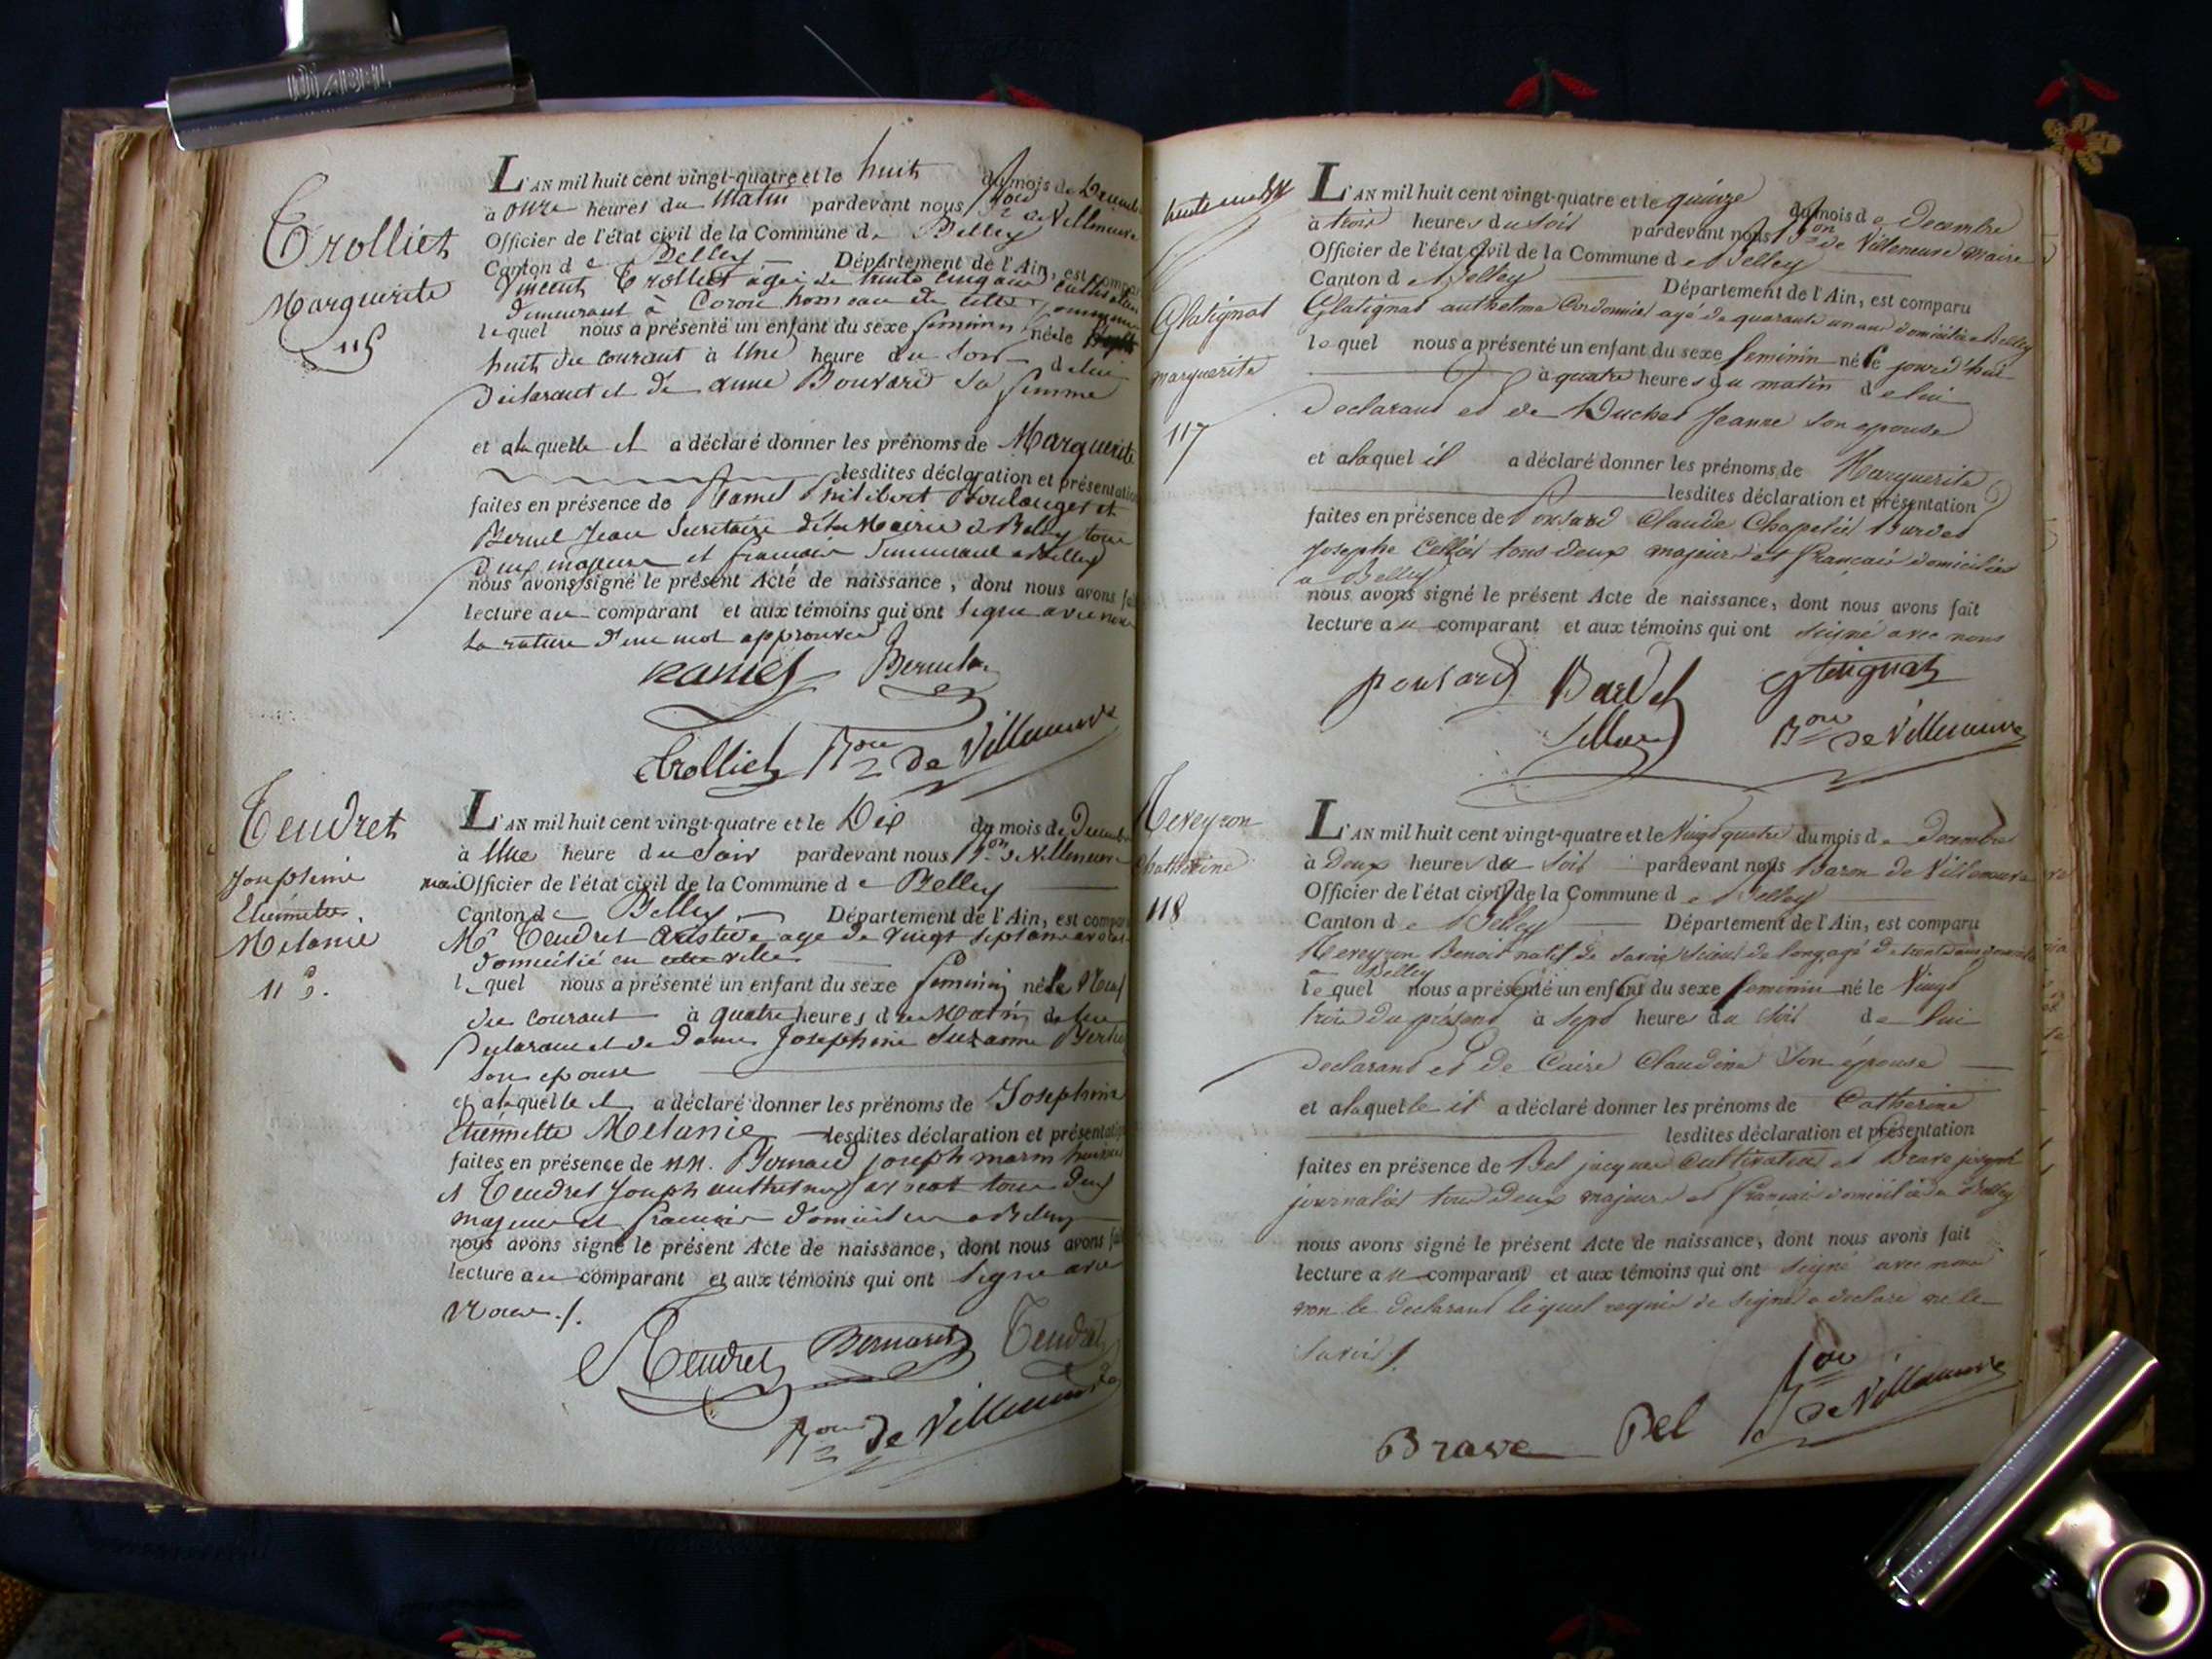 Trolliet
Marguerite
115
L'AN mil huit cent vingt-quatre et le huit du mois de Decembre
à onze heures du Matin pardevant nous Bon de Villeneuve
Officier de l'état civil de la Commune de Belley
Canton de Belley Département de l'Ain, est comparu
Vincent Trolliet agé de trente cinq ans cultivateur
demeurant à Coron hameau de cette commune
lequel nous a présenté un enfant du sexe feminin né le
huit du courant à Une heure du Soir de lui
déclarant et de anne Bouvard sa femme
et alaquelle il a déclaré donner les prénoms de Marguerite
lesdites déclaration et présentation
faites en présence de Ramel Philibert Boulanger et
Bernel Jean Secretaire de la Mairie de Belley tous
deux majeurs et français demeurant a Belley
nous avons signé le présent Acte de naissance, dont nous avons fait
lecture au comparant et aux témoins qui ont signé avec nous
La rature d'un mot approuvée
Ramel
Trolliet Bon de Villeneuve
Tendret
Josephine
Etiennette
Melanie
L'AN mil huit cent vingt-quatre et le Dix du mois de Decembre
à Une heure du Soir pardevant nous Bon de Villeneuve
maire Officier de l'état civil de la Commune de Belley
Canton de Belley Département de l'Ain, est comparu
Mr Tendret Aristide agé de vingt sept ans avocat
domicilié en cette ville
lequel nous a présenté un enfant du sexe feminin né le Neuf
du courant à quatre heures du Matin de lui
declarant et de dame Josephine Suzanne
son epouse
et alaquelle il a déclaré donner les prénoms de Josephine
Etiennette Melanie lesdites déclaration et présentation
faites en présence de MM. Bernard joseph marin huissier
et Tendret Joseph anthelme avocat tous deux
majeurs et français domiciliés a Belley
nous avons signé le présent Acte de naissance, dont nous avons fait
lecture au comparant et aux témoins qui ont signé avec
nous ./.
Tendret Bernard Tendret
Bon de Villeneuve
Glatignat
marguerite
117
L'AN mil huit cent vingt-quatre et le quinze du mois de Decembre
à trois heures du soir pardevant nous Bon de Villeneuve maire
Officier de l'état civil de la Commune de Belley
Canton de Belley Département de l'Ain, est comparu
Glatignat anthelme Cordonnier agé de quarante un ans domicilié a Belley
lequel nous a présenté un enfant du sexe feminin né le jourd'hui
à quatre heures du matin de lui
Declarant et de Buchet Jeanne son epouse
et alaquel il a déclaré donner les prénoms de Marguerite
lesdites déclaration et présentation
faites en présence de Ponsard Claude Chapelier Bardet
Josephe Cellier tous deux majeurs et français domiciliés
a Belley
nous avons signé le présent Acte de naissance, dont nous avons fait
lecture au comparant et aux témoins qui ont seigné avec nous
ponsard Bardet Glatignat
Sellier Bon de Villeneuve
Teveyron
Chatherine
118
L'AN mil huit cent vingt-quatre et le Vingt quatre du mois de Decembre
à Deux heures du soir pardevant nous Baron de Villeneuve
Officier de l'état civil de la Commune de Belley
Canton de Belley Département de l'Ain, est comparu
Teveyron Benoit natif de savoie Scieur de long agé de trente ans domicilié
a Belley
lequel nous a présenté un enfant du sexe feminin né le Vingt
trois du présent à sept heures du Soir de lui
Declarant et de Caire Claudine Son épouse
et alaquelle il a déclaré donner les prénoms de Catherine
lesdites déclaration et présentation
faites en présence de Bel jacques Cultivateur et Brave joseph
journalier tous Deux majeurs et français domiciliés a Belley
nous avons signé le présent Acte de naissance, dont nous avons fait
lecture au comparant et aux témoins qui ont seigné avec nous
non le declarant lequel requis de seigner a declaré ne le
savoir ./.
Brave Bel Bon de Villeneuve